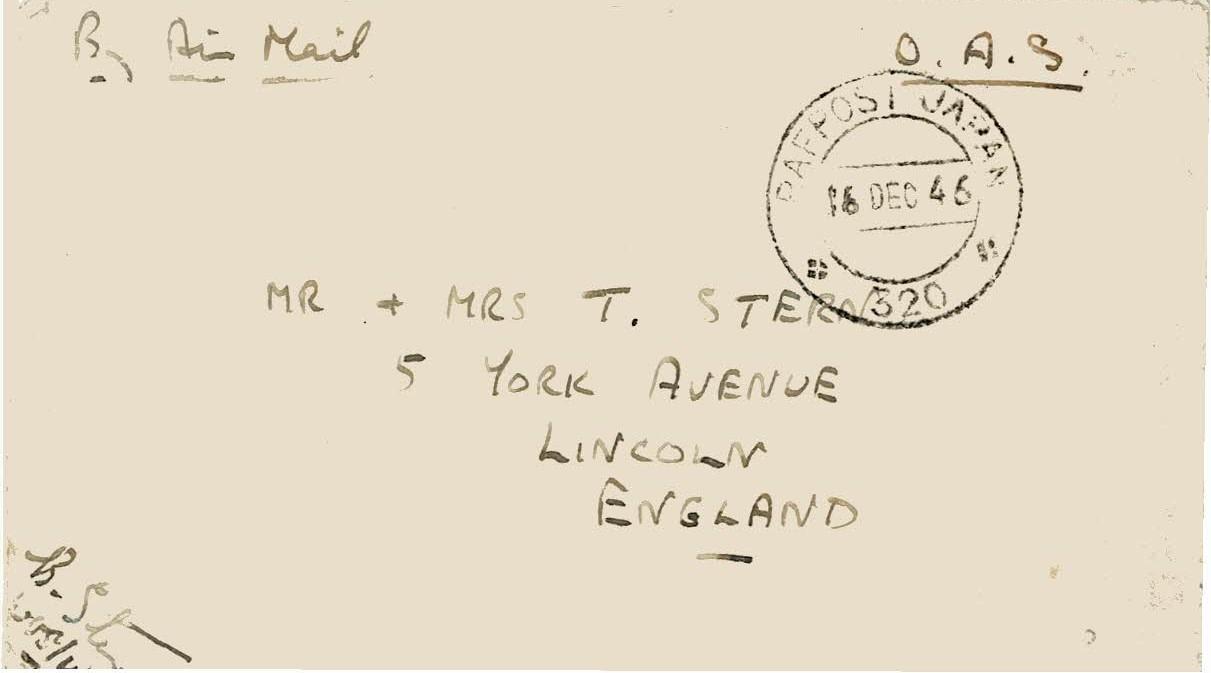 By Air Mail
O. A. S.
RAFPOST JAPAN
16 DEC 46
320
MR + MRS T. STERN
5 YORK AVENUE
LINCOLN
ENGLAND
B.